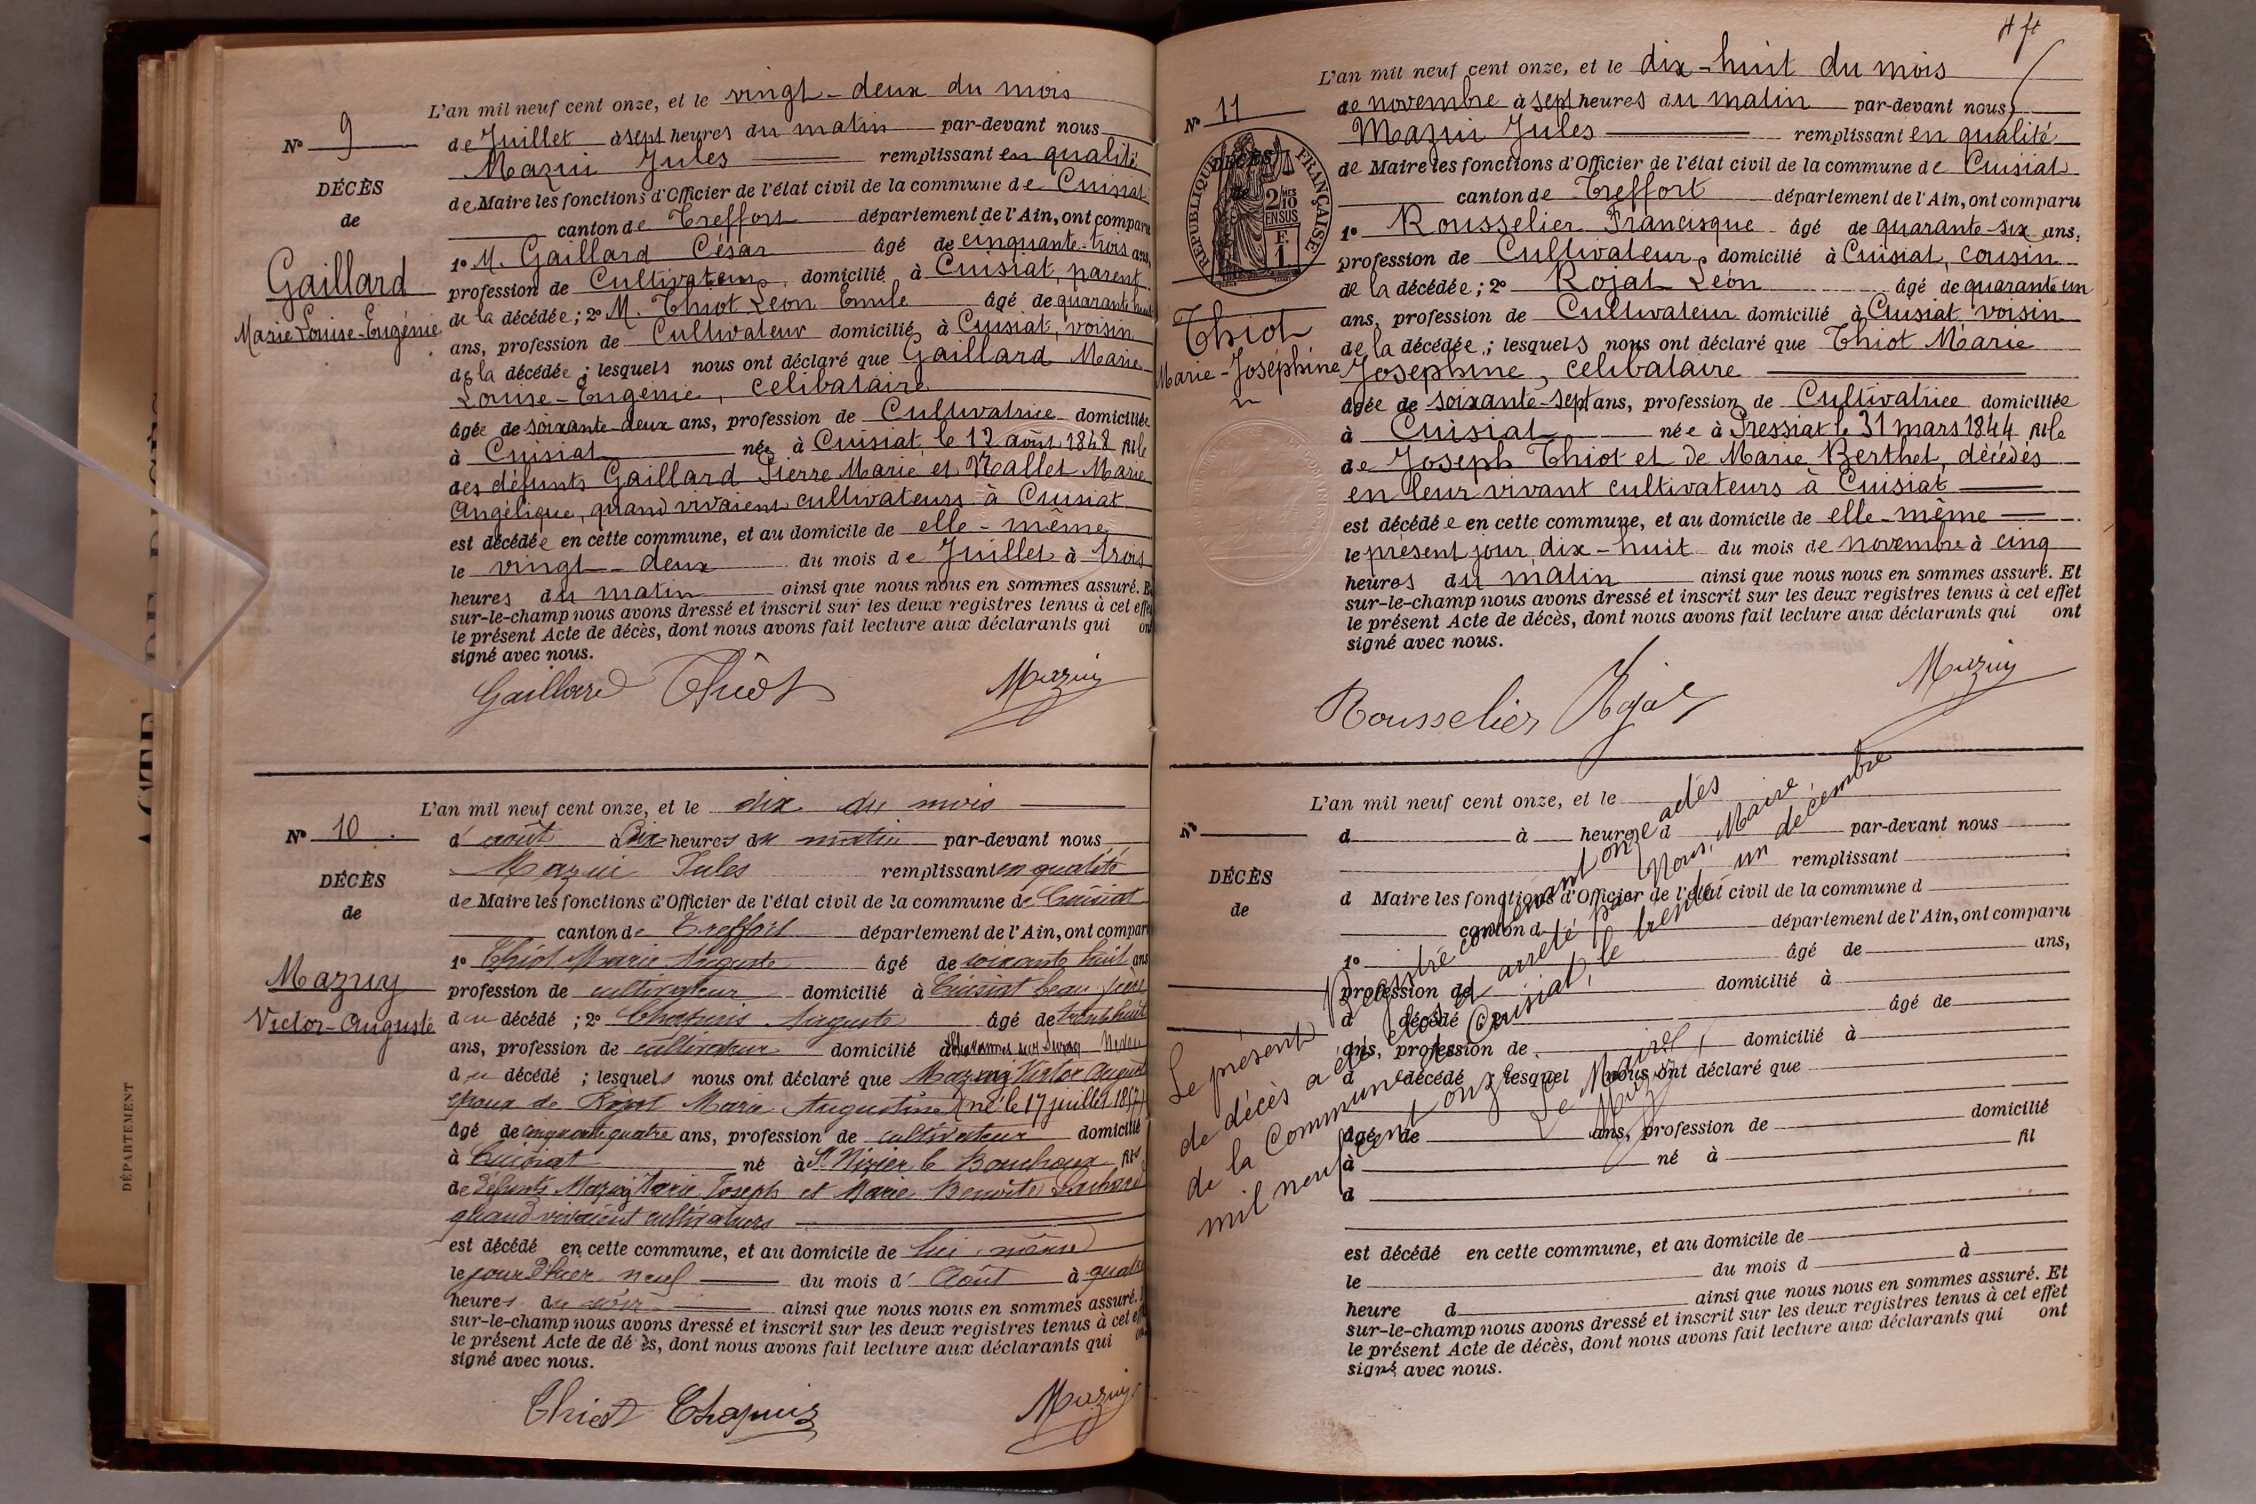 N° 9
DÉCÈS
de
Gaillard
Marie Louise-Eugénie
L'an mil neuf cent onze, et le vingt-deux du mois
de Juillet à sept heures du matin par-devant nous
Mazui Jules remplissant en qualité
de Maire les fonctions d'Officier de l'état civil de la commune de Cuisiat
canton de Treffort département de l'Ain, ont comparu
1° M. Gaillard César âgé de cinquante-trois ans,
profession de Cultivateur, domicilié à Cuisiat, parent
de la décédée; 2° M. Thiot Léon Emile âgé de quarante huit
ans, profession de Cultivateur domicilié à Cuisiat, voisin
de la décédée; lesquels nous ont déclaré que Gaillard Marie
Louise-Eugénie, célibataire
âgée de soixante-deux ans, profession de Cultivatrice domiciliée
à Cuisiat née à Cuisiat le 12 août 1848 fille
des défunts Gaillard Pierre Marie et Mallet Marie
Angélique, quand vivaient cultivateurs à Cuisiat
est décédée en cette commune, et au domicile de elle-même
le vingt-deux du mois de Juillet à trois
heures du matin ainsi que nous nous en sommes assuré. Et
sur-le-champ nous avons dressé et inscrit sur les deux registres tenus à cet effet
le présent Acte de décès, dont nous avons fait lecture aux déclarants qui ont
signé avec nous.
Gaillard Thiot Mazuy
N° 10
DÉCÈS
de
Mazuy
Victor-Auguste
L'an mil neuf cent onze, et le dix du mois
d'août à dix heures du matin par-devant nous
Mazui Jules remplissant en qualité
de Maire les fonctions d'Officier de l'état civil de la commune de Cuisiat
canton de Treffort département de l'Ain, ont comparu
1° Thiot Marie Auguste âgé de soixante huit ans
profession de cultivateur domicilié à Cuisiat beau-frère
du décédé; 2° Chapuis Auguste âgé de trente huit
ans, profession de cultivateur domicilié à Chavannes sur Suran Neveu
du décédé; lesquels nous ont déclaré que Mazuy Victor Auguste
époux de Rojat Marie Augustine (né le 17 juillet 1857)
âgé de cinquante quatre ans, profession de cultivateur domicilié
à Cuisiat né à St Nizier le Bouchoux fils
de défunts Mazuy Marie Joseph et Marie Benoîte
quand vivaient cultivateurs
est décédé en cette commune, et au domicile de lui-même
le jour d'hier neuf du mois d'Août à quatre
heures du soir ainsi que nous nous en sommes assuré.
sur-le-champ nous avons dressé et inscrit sur les deux registres tenus à cet effet
le présent Acte de dé ès, dont nous avons fait lecture aux déclarants qui
signé avec nous.
Thiot Chapuis Mazuy
4 ft
N° 11
DÉCÈS
de
RÉPUBLIQUE FRANÇAISE
2/10 EN SUS
Thiot
Marie-Joséphine
L'an mil neuf cent onze, et le dix-huit du mois
de novembre à sept heures du matin par-devant nous
Mazui Jules remplissant en qualité
de Maire les fonctions d'Officier de l'état civil de la commune de Cuisiat
canton de Treffort département de l'Ain, ont comparu
1° Rousselier Francisque âgé de quarante-six ans,
profession de Cultivateur domicilié à Cuisiat, cousin
de la décédée; 2° Rojat Léon âgé de quarante un
ans, profession de Cultivateur domicilié à Cuisiat, voisin
de la décédée; lesquels nous ont déclaré que Thiot Marie
Joséphine, célibataire
âgée de soixante-sept ans, profession de Cultivatrice domiciliée
à Cuisiat née à Pressiat le 31 mars 1844 fille
de Joseph Thiot et de Marie Berthet, décédés
en leur vivant cultivateurs à Cuisiat
est décédée en cette commune, et au domicile de elle-même
le présent jour dix-huit du mois de novembre à cinq
heures du matin ainsi que nous nous en sommes assuré. Et
sur-le-champ nous avons dressé et inscrit sur les deux registres tenus à cet effet
le présent Acte de décès, dont nous avons fait lecture aux déclarants qui ont
signé avec nous.
Rousselier Rojat Mazuy
N°
DÉCÈS
de
L'an mil neuf cent onze, et le
d à heure d par-devant nous
remplissant
d Maire les fonctions d'Officier de l'état civil de la commune d
canton d département de l'Ain, ont comparu
1° âgé de ans,
profession de domicilié à
d décédé; 2° âgé de
ans, profession de domicilié à
d décédé; lesquel nous ont déclaré que
âgé de ans, profession de domicilié
à né à fil
d
est décédé en cette commune, et au domicile de
le du mois d à
heure d ainsi que nous nous en sommes assuré. Et
sur-le-champ nous avons dressé et inscrit sur les deux registres tenus à cet effet
le présent Acte de décès, dont nous avons fait lecture aux déclarants qui ont
signé avec nous.
Le présent Registre contenant onze actes
de décès a été clos et arrêté par Nous, Maire
de la Commune de Cuisiat, le trente un décembre
mil neuf cent onze
Le Maire,
Mazuy
DÉPARTEMENT